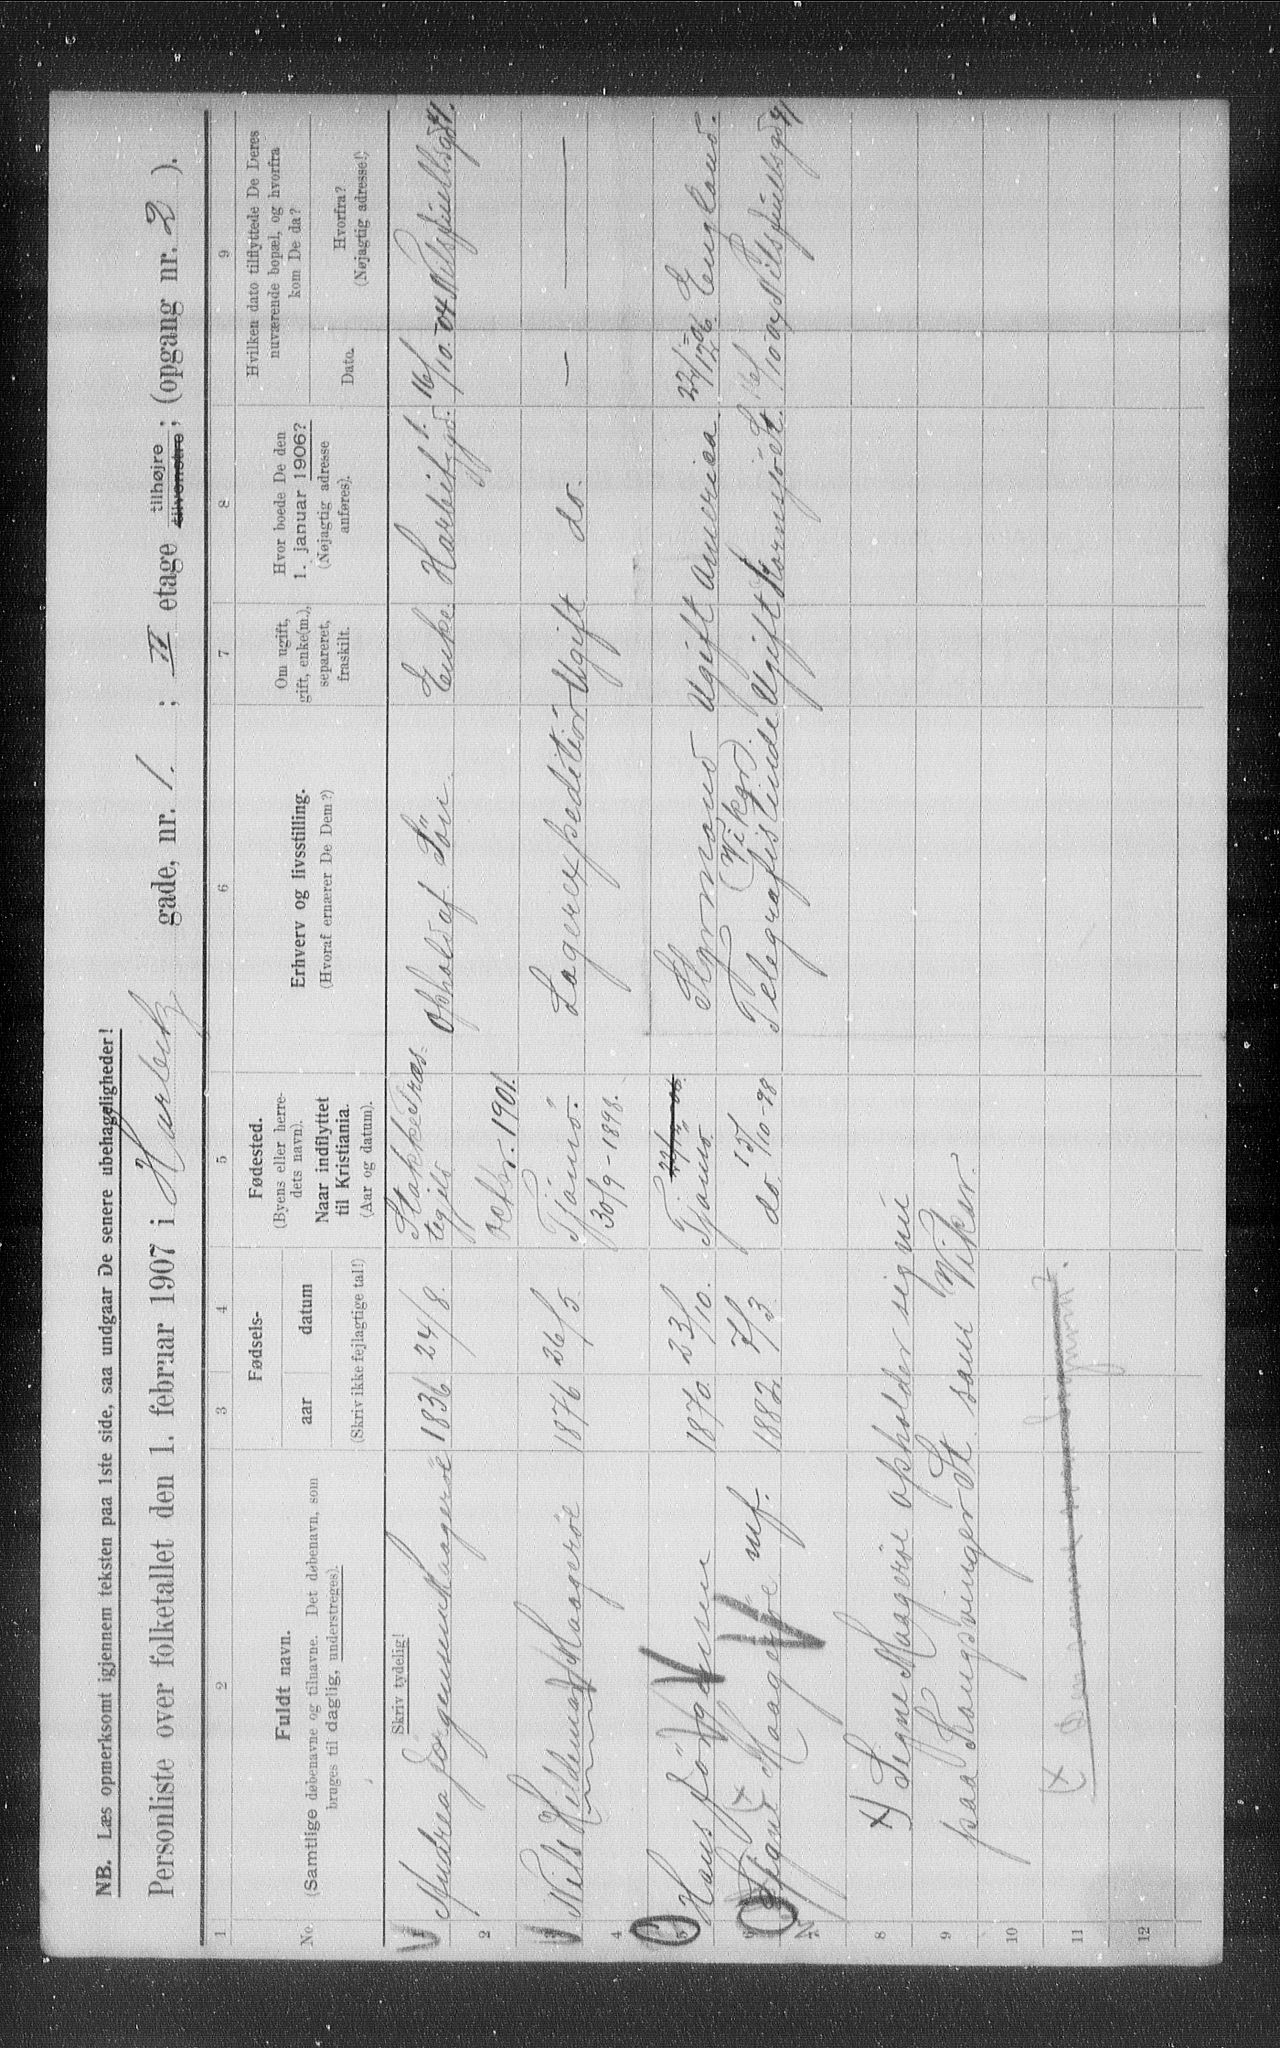 NB. Læs opmerksomt igjennem teksten paa 1ste side, saa undgaar De senere ubehageligheder!
Personliste over folketallet den 1. februar 1907 i Harbitz gade, nr. 1. ; II etage tilhøjre tilvenstre ; (opgang nr. 2 ).
1 2 3 4 5 6 7 8 9
No
Fuldt navn.
(Samtlige døbenavne og tilnavne. Det døbenavn, som
bruges til daglig, understreges).
Skriv tydelig!
Fødsels-
aar datum
(Skriv ikke fejlagtige tal!)
Fødested.
(Byens eller herre-
dets navn).
Naar indflyttet
til Kristiania.
(Aar og datum).
Erhverv og livsstilling.
(Hvoraf ernærer De Dem?)
Om ugift,
gift, enke(m.),
separeret,
fraskilt.
Hvor boede De den
1. januar 1906?
(Nøjagtig adresse
anføres).
Hvilken dato tilflyttede De Deres
nuværende bopæl, og hvorfra
kom De da?
Dato.
Hvorfra?
(Nøjagtig adresse!)
1 Andrea Jørgensen Haagerøe 1836 24/8. Stokke Præs-
tegjeld
opholdaf Søn. Enke Harbitzgd. 1. 16/10.-04 Nilsjuelsgd 41.
2 octbr. 1901.
3 Niels Hildemar Haagerøe 1876 26/5 Tjømø. Lagerexpeditiør Ugift do. — —
4 30/9-1898.
5 Hans Jörgensen 1870. 23/10. Tjømø. 22/12-06. Styrmand Ugift America 22/12-06. England.
6 Signe x) Haagerøe mf. 1882 7/3 do. 15/10-98 Telegrafistinde (Vikar) Ugift Kornsjö St. 16/10-04 Nilsjuelsgd 41
7
8 x) Signe Haagerøe opholder sig nu
9 paa Kongsvinger St. som Vikar.
10
11 (x
12